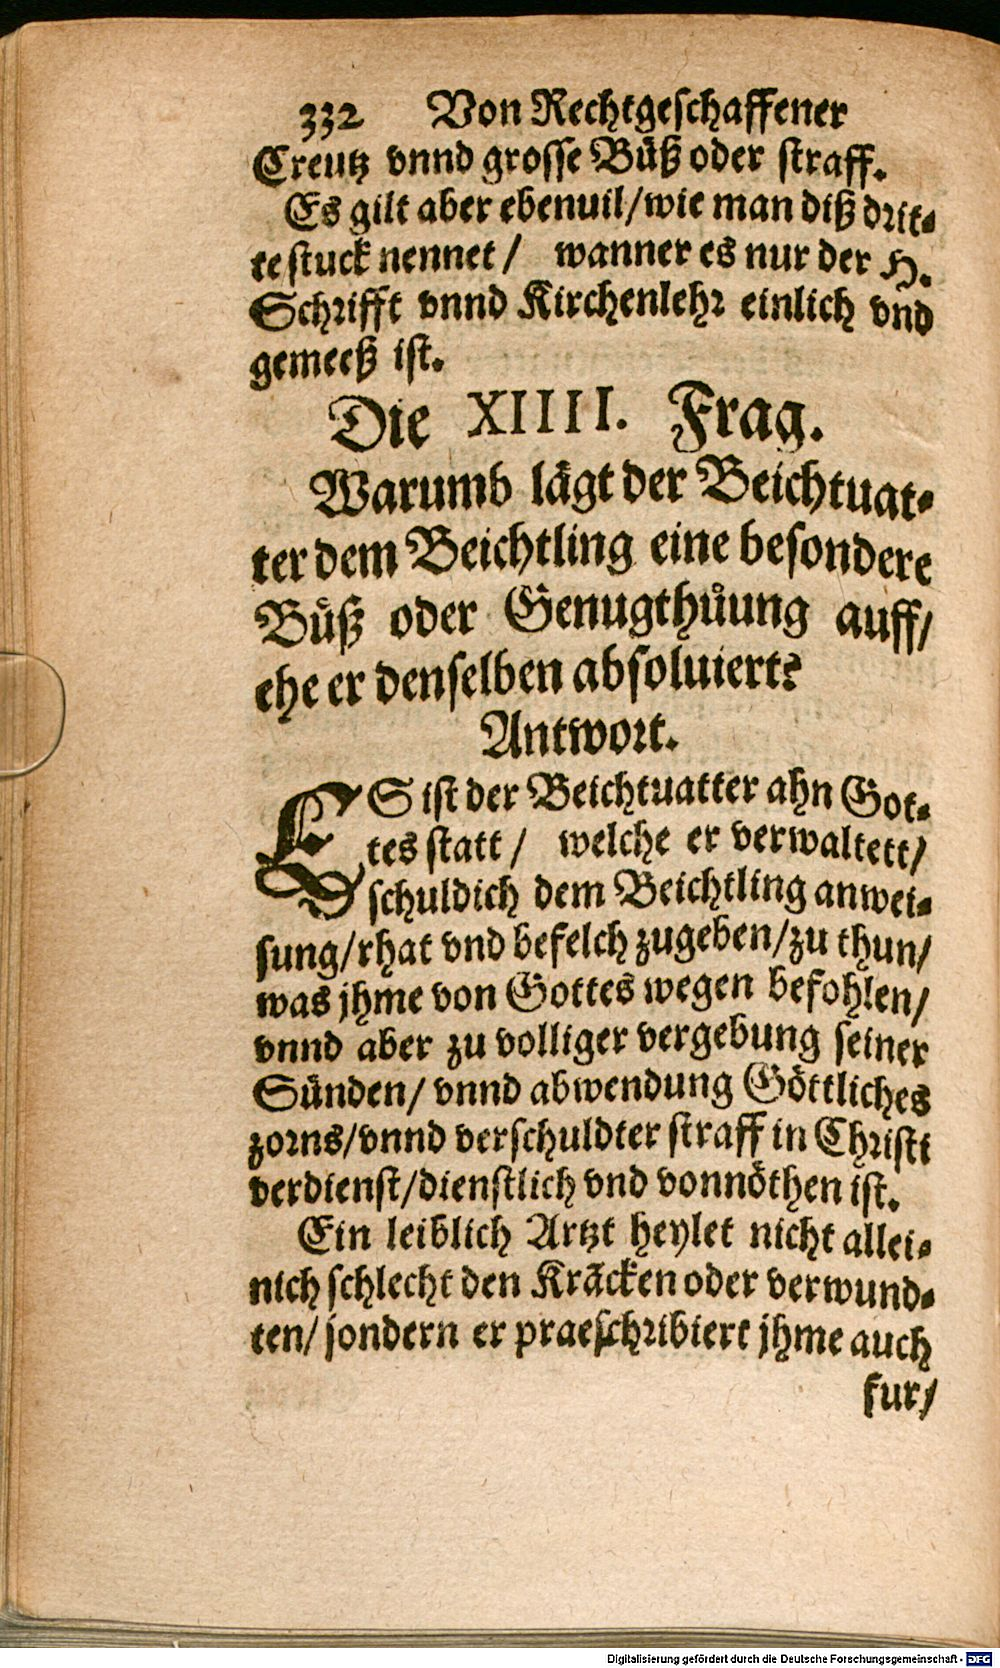 332 Von Rechtgeschaffener
Creutz vnnd grosse Büß oder straff.
Es gilt aber ebenuil/wie man diß drit-
te stuck nennet / wanner es nur der H.
Schrifft vnnd Kirchenlehr einlich vnd
gemeeß ist.
Die XIIII. Frag.
Warumb lägt der Beichtuat-
ter dem Beichtling eine besondere
Büß oder Genugthůung auff/
ehe er denselben absoluiert?
Antwort.
ES ist der Beichtuatter ahn Got-
tes statt / welche er verwaltett/
schuldich dem Beichtling anwei-
sung/rhat vnd befelch zugeben/zu thun/
was jhme von Gottes wegen befohlen/
vnnd aber zu volliger vergebung seiner
Sünden/ vnnd abwendung Göttliches
zorns/vnnd verschuldter straff in Christi
verdienst/dienstlich vnd vonnöthen ist.
Ein leiblich Artzt heylet nicht allei-
nich schlecht den Kräcken oder verwund-
ten/ sondern er praeschribiert jhme auch
fur/
Digitalisierung gefördert durch die Deutsche Forschungsgemeinschaft - DFG